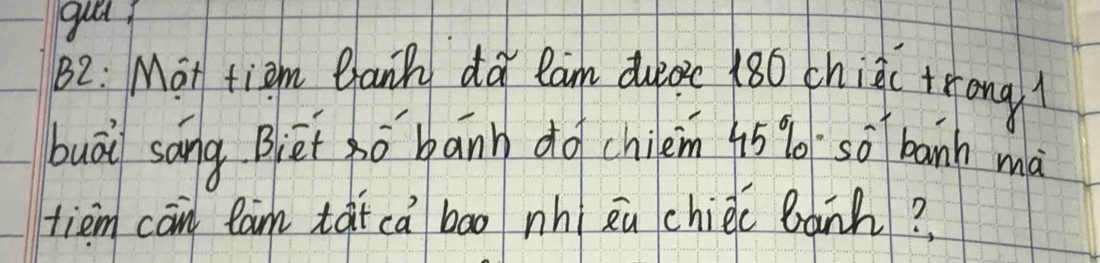 B2: Một tiệm bánh đã làm được 180 chiếc trong 1
buổi sáng. Biết số bánh đó chiếm 45% số bánh mà
tiệm cần làm tất cả bao nhiêu chiếc bánh?